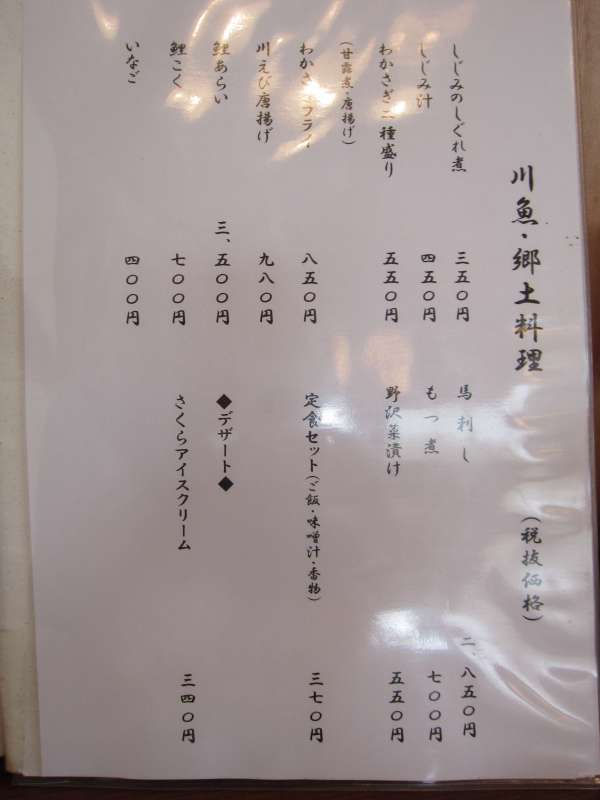 川魚・郷土料理 (税抜価格)
しじみのしぐれ煮 三五〇円
しじみ汁 四五〇円
わかさぎ二種盛り 五五〇円
(甘露煮・唐揚げ)
わかさぎフライ 八五〇円
川えび唐揚げ 九八〇円
鯉あらい 三、五〇〇円
鯉こく 七〇〇円
いなご 四〇〇円
馬刺し 二、八五〇円
もつ煮 七〇〇円
野沢菜漬け 五五〇円
定食セット(ご飯・味噌汁・香物) 三七〇円
◆デザート◆
さくらアイスクリーム 三四〇円